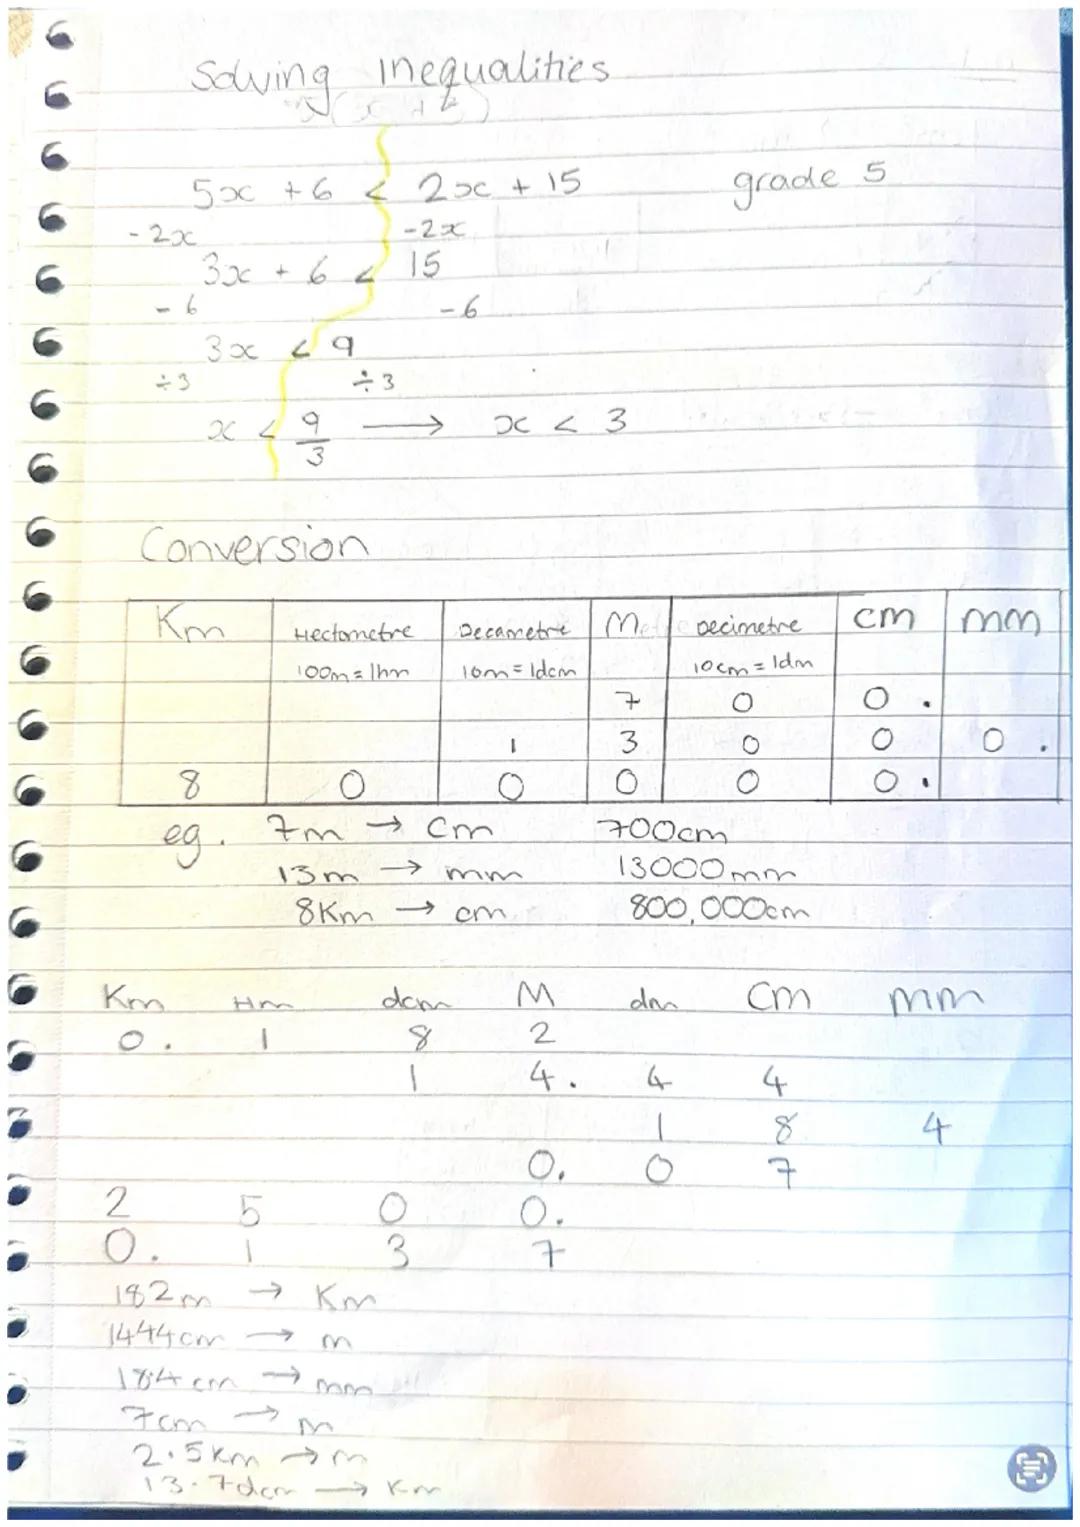 Solving inequalities
5x + 6 < 2x + 15 grade 5
-2x -2x
3x + 6 < 15
- 6 -6
3x < 9
÷3 ÷3
x < 9/3 → x < 3
Conversion
Km Hectometre Decametre M Decimetre cm mm
100m = 1hm 10m = 1dcm 10cm = 1dm
7 0 0 .
1 3 0 0 0 .
8 0 0 0 0 0 .
eg. 7m → cm 700cm
13m → mm 13000mm
8Km → cm 800,000cm
Km Hm dcm M dm Cm mm
0 . 1 8 2
1 4 . 4 4
1 8 4
0. 0 7
2 5 0 0.
0. 1 3 7
182m → Km
1444cm → m
18.4 cm → mm
7cm → m
2.5km → m
13.7dcm → Km